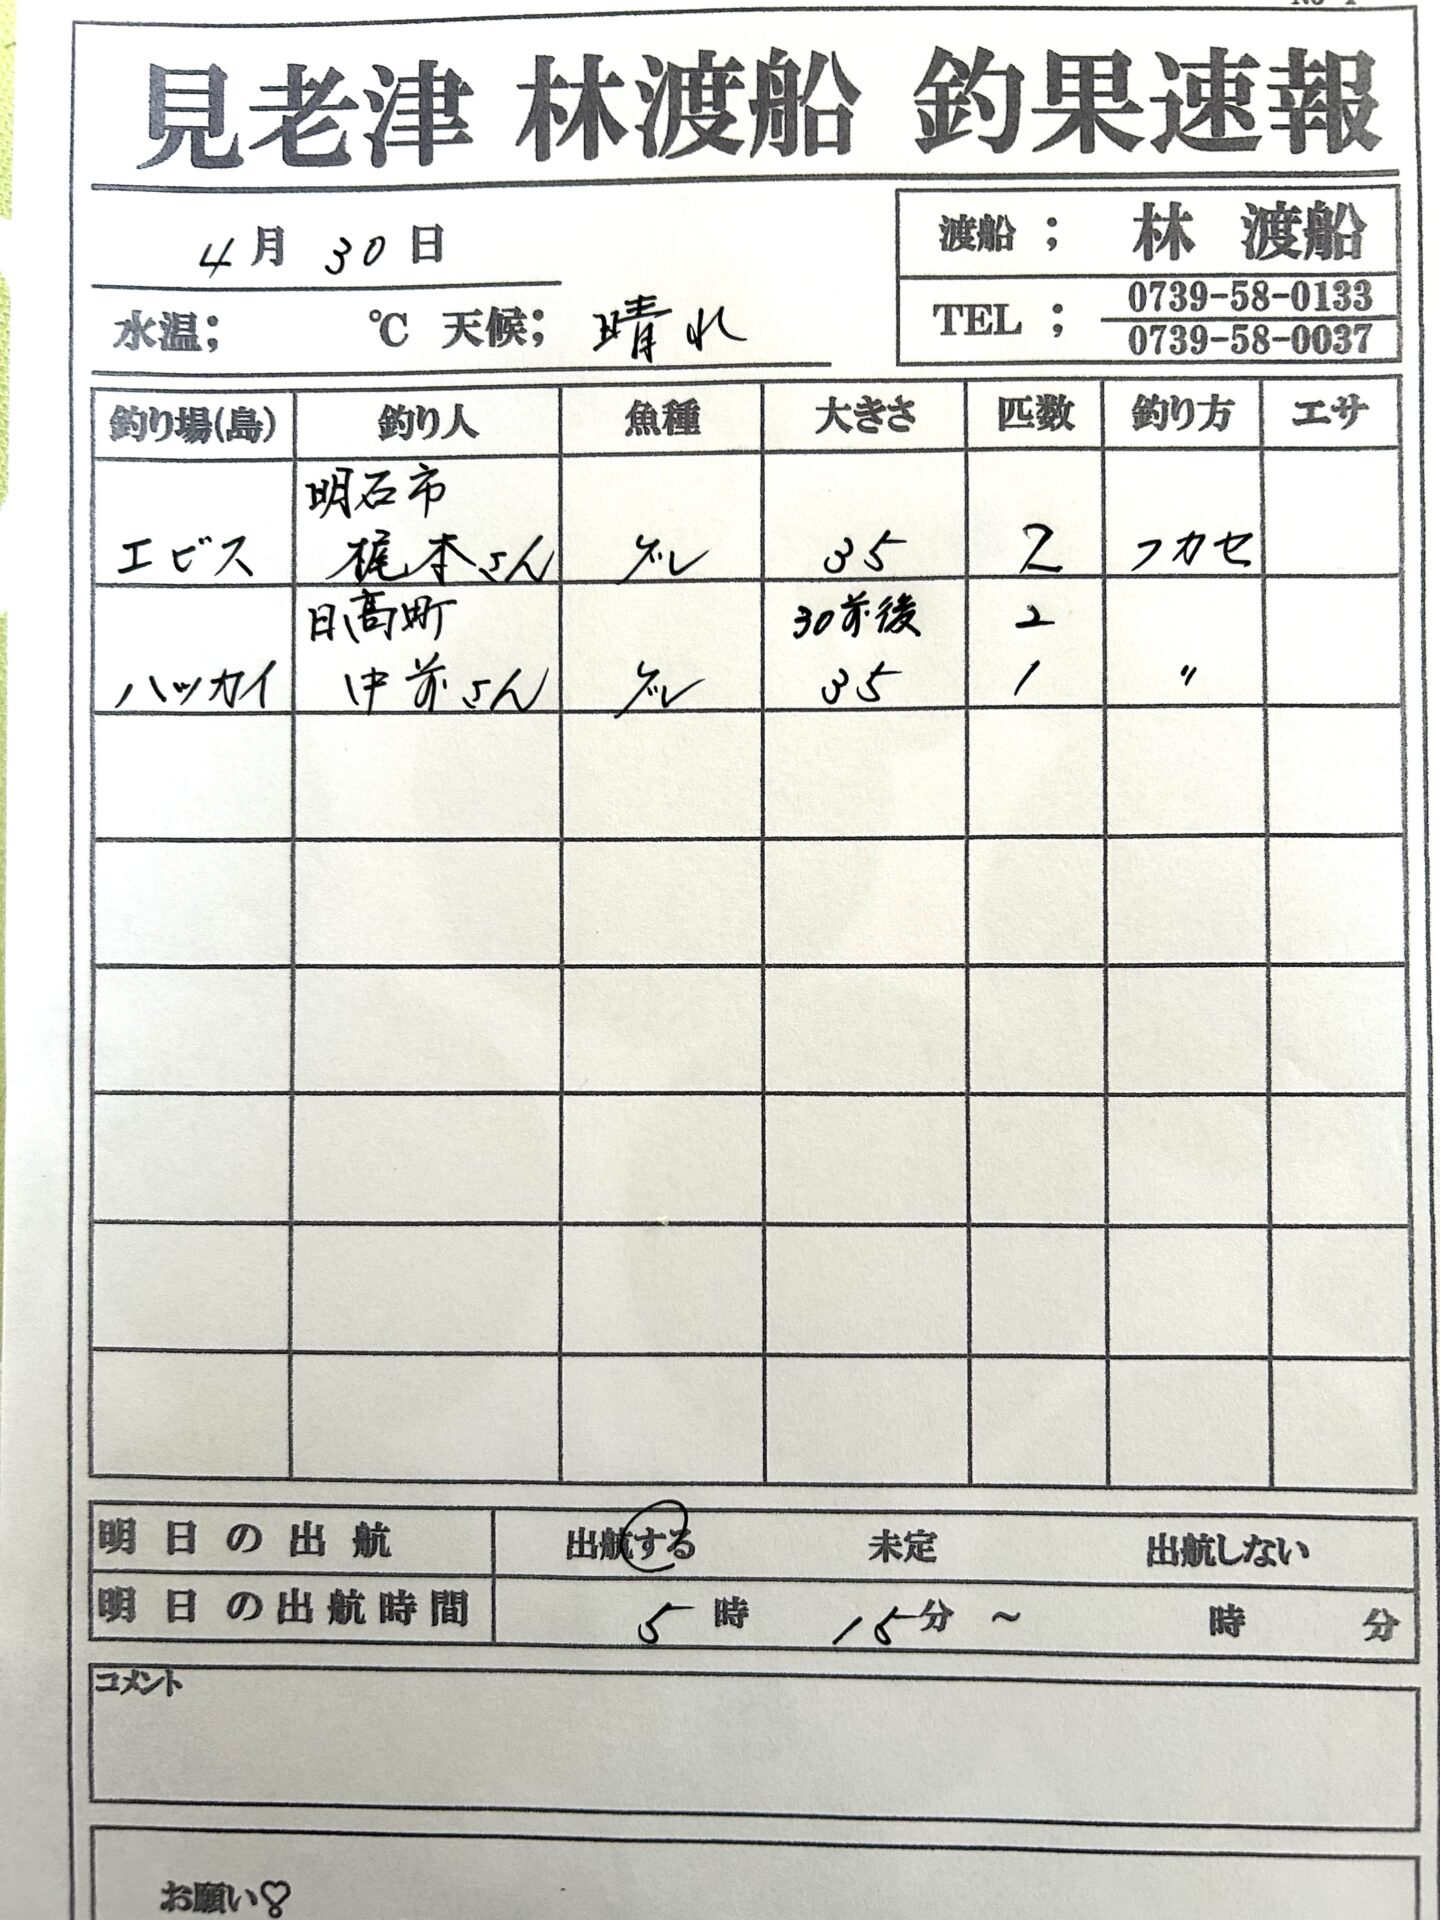 見老津 林渡船 釣果速報
4月30日
渡船; 林 渡船
水温; ℃ 天候; 晴れ
TEL; 0739-58-0133
0739-58-0037
釣り場(島) 釣り人 魚種 大きさ 匹数 釣り方 エサ
明石市
エビス 梶本さん グレ 35 2 フカセ
日高町 30前後 2
ハッカイ 中前さん グレ 35 1 〃
明日の出航 出航する 未定 出航しない
明日の出航時間 5時 15分 ~ 時 分
コメント
お願い♡